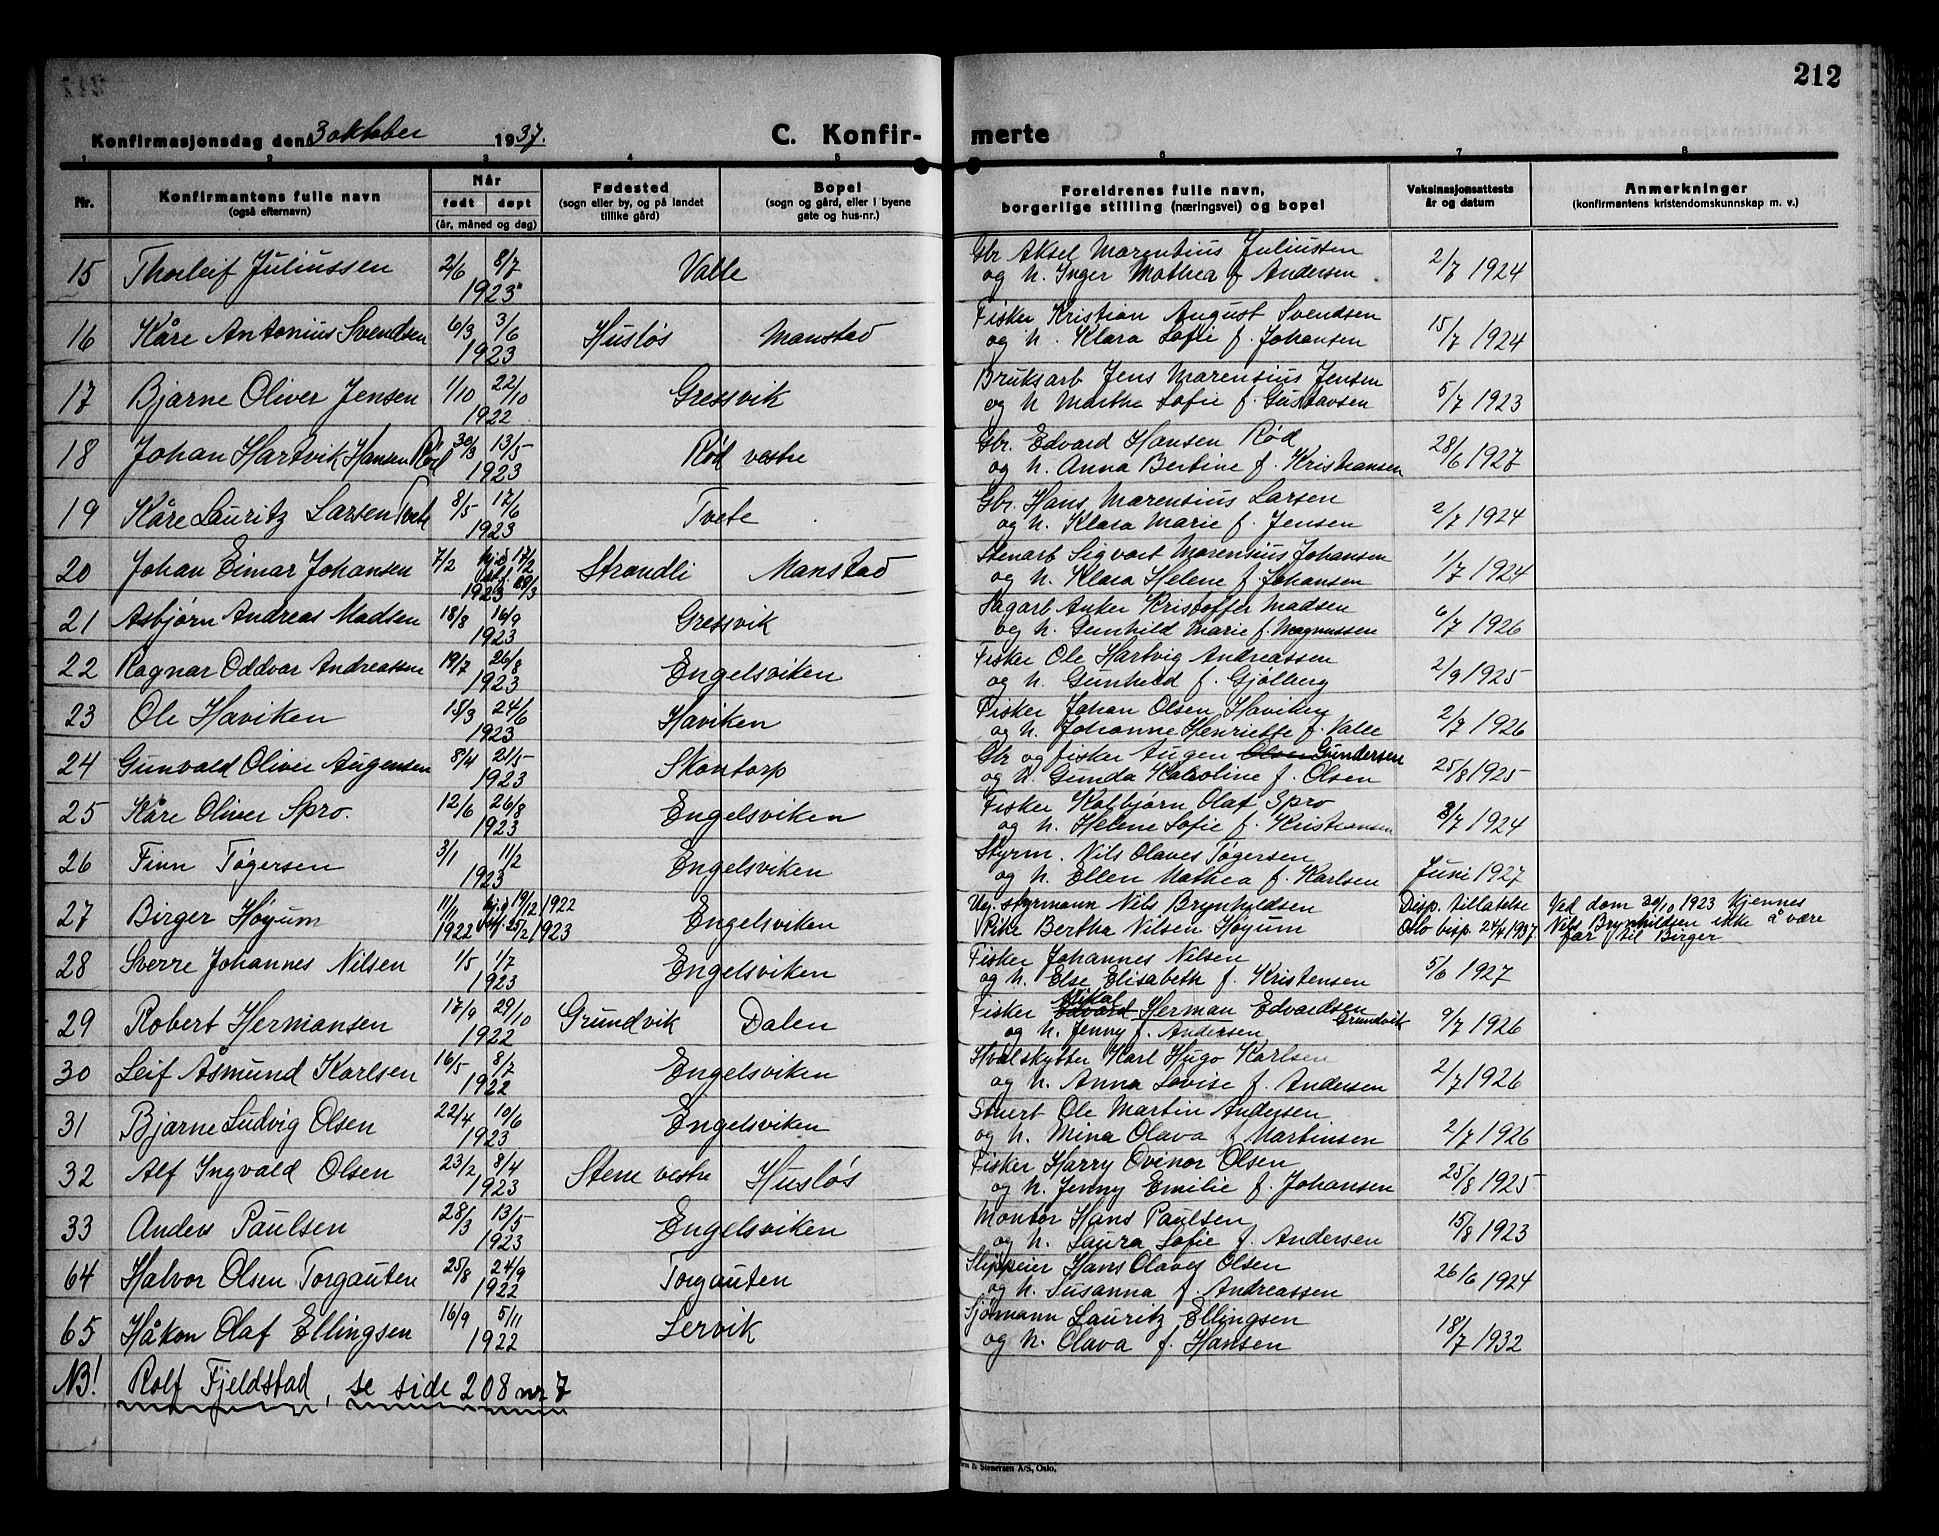 212
Konfirmasjonsdag den 3 oktober 1937.
C. Konfir-merte
1 2 3 4 5 6 7 8
Nr. | Konfirmantens fulle navn (også efternavn) | Når født døpt (år, måned og dag) | Fødested (sogn eller by, og på landet tillike gård) | Bopel (sogn og gård, eller i byene gate og hus-nr.) | Foreldrenes fulle navn, borgerlige stilling (næringsvei) og bopel | Vaksinasjonsattests år og datum | Anmerkninger (konfirmantens kristendomskunnskap m. v.)
15 Thorleif Juliussen 2/6 8/7 1923 Valle Gbr Aksel Marentius Juliussen
og h. Inger Mathea f Andersen 2/7 1924
16 Kåre Antonius Svendsen 6/3 3/6 1923 Husløs Manstad Fisker Kristian August Svendsen
og h. Klara Sofie f. Johansen 15/7 1924
17 Bjarne Oliver Jensen 1/10 22/10 1922 Gressvik Bruksarb Jens Marensius Jensen
og h Marthe Sofie f. Gustavsen 5/7 1923
18 Johan Hartvik Hansen Rød 30/3 13/5 1923 Rød vestre Gbr. Edvard Hansen Rød
og h. Anna Bertine f. Kristiansen 28/6 1927
19 Kåre Lauritz Larsen Tvete 8/5 17/6 1923 Tvete Gbr. Hans Marensius Larsen
og h. Klara Marie f. Jensen 2/7 1924
20 Johan Eimar Johansen 7/2 hj.d. 17/2 1923 Strandli Manstad Stenarb Sigvart Marensius Johansen
og h. Klara Helene f. Johansen 1/7 1924
21 Asbjørn Andreas Madsen 18/8 16/9 1923 Gressvik Sagarb Anker Kristoffer Madsen
og h. Gunhild Marie f. Magnussen 6/7 1926
22 Ragnar Oddvar Andreassen 19/7 26/8 1923 Engelsviken Fisker Ole Hartvig Andreassen
og h. Gunhild f. Gjølberg 2/9 1925
23 Ole Haviken 15/3 24/6 1923 Haviken Fisker Johan Olsen Haviken
og h. Johanne Henriette f. Valle 2/7 1926
24 Gunvald Oliver Augensen 8/4 21/5 1923 Skontorp Gbr og fisker Augen Olsen Gundersen
og h. Gunda Karoline f. Olsen 25/8 1925
25 Kåre Oliver Spro. 12/6 26/8 1923 Engelsviken Fisker Kolbjørn Olaf Spro
og h. Helene Sofie f. Kristiansen 8/7 1924
26 Finn Tøgersen 3/1 11/2 1923 Engelsviken Styrm. Nils Olaves Tøgersen
og h. Ellen Mathea f. Karlsen Juni 1927
27 Birger Høyum 11/11 1922 hj.d 19/12 1922 25/2 1923 Engelsviken Ug. styrmann Nils Brynhildsen
Pike Bertha Nilsen Høyum Disp. tillatelse
Oslo bisp. 24/4 1937. Ved dom 30/10 1923 kjennes
Nils Brynhildsen ikke å være
far til Birger
28 Sverre Johannes Nilsen 1/5 1/7 1923 Engelsviken Fisker Johannes Nilsen
og h. Else Elisabeth f. Kristensen 5/6 1927
29 Robert Hermansen 17/9 29/10 1922 Grundvik Dalen Fisker Edvard Mikal Herman Edvardsen Grundvik
og h. Jenny f. Andersen 9/7 1926
30 Leif Åsmund Karlsen 16/5 8/7 1922 Engelsviken Hvalskytter Karl Hugo Karlsen
og h. Anna Lovise f. Andersen 2/7 1926
31 Bjarne Ludvig Olsen 22/4 10/6 1923 Engelsviken Stuert Ole Martin Andersen
og h. Mina Olava f Martinsen 2/7 1926
32 Alf Ingvald Olsen 23/2 8/4 1923 Stene vestre Husløs Fisker Harry Ovinor Olsen
og h. Jenny Emilie f. Johansen 25/8 1925
33 Anders Paulsen 28/3 13/5 1923 Engelsviken Montør Hans Paulsen
og h. Laura Sofie f. Andersen 15/8 1923
64 Halvor Olsen Torgauten 25/8 24/9 1922 Torgauten Slippeier Hans Olaves Olsen
og h. Susanna f Andreassen 26/6 1924
65 Håkon Olaf Ellingsen 16/9 5/11 1922 Lervik Sjømann Lauritz Ellingsen
og h. Olava f. Hansen 18/7 1932
NB! Rolf Fjeldstad, se side 208 nr 7
& Stenersen A/S, Oslo.